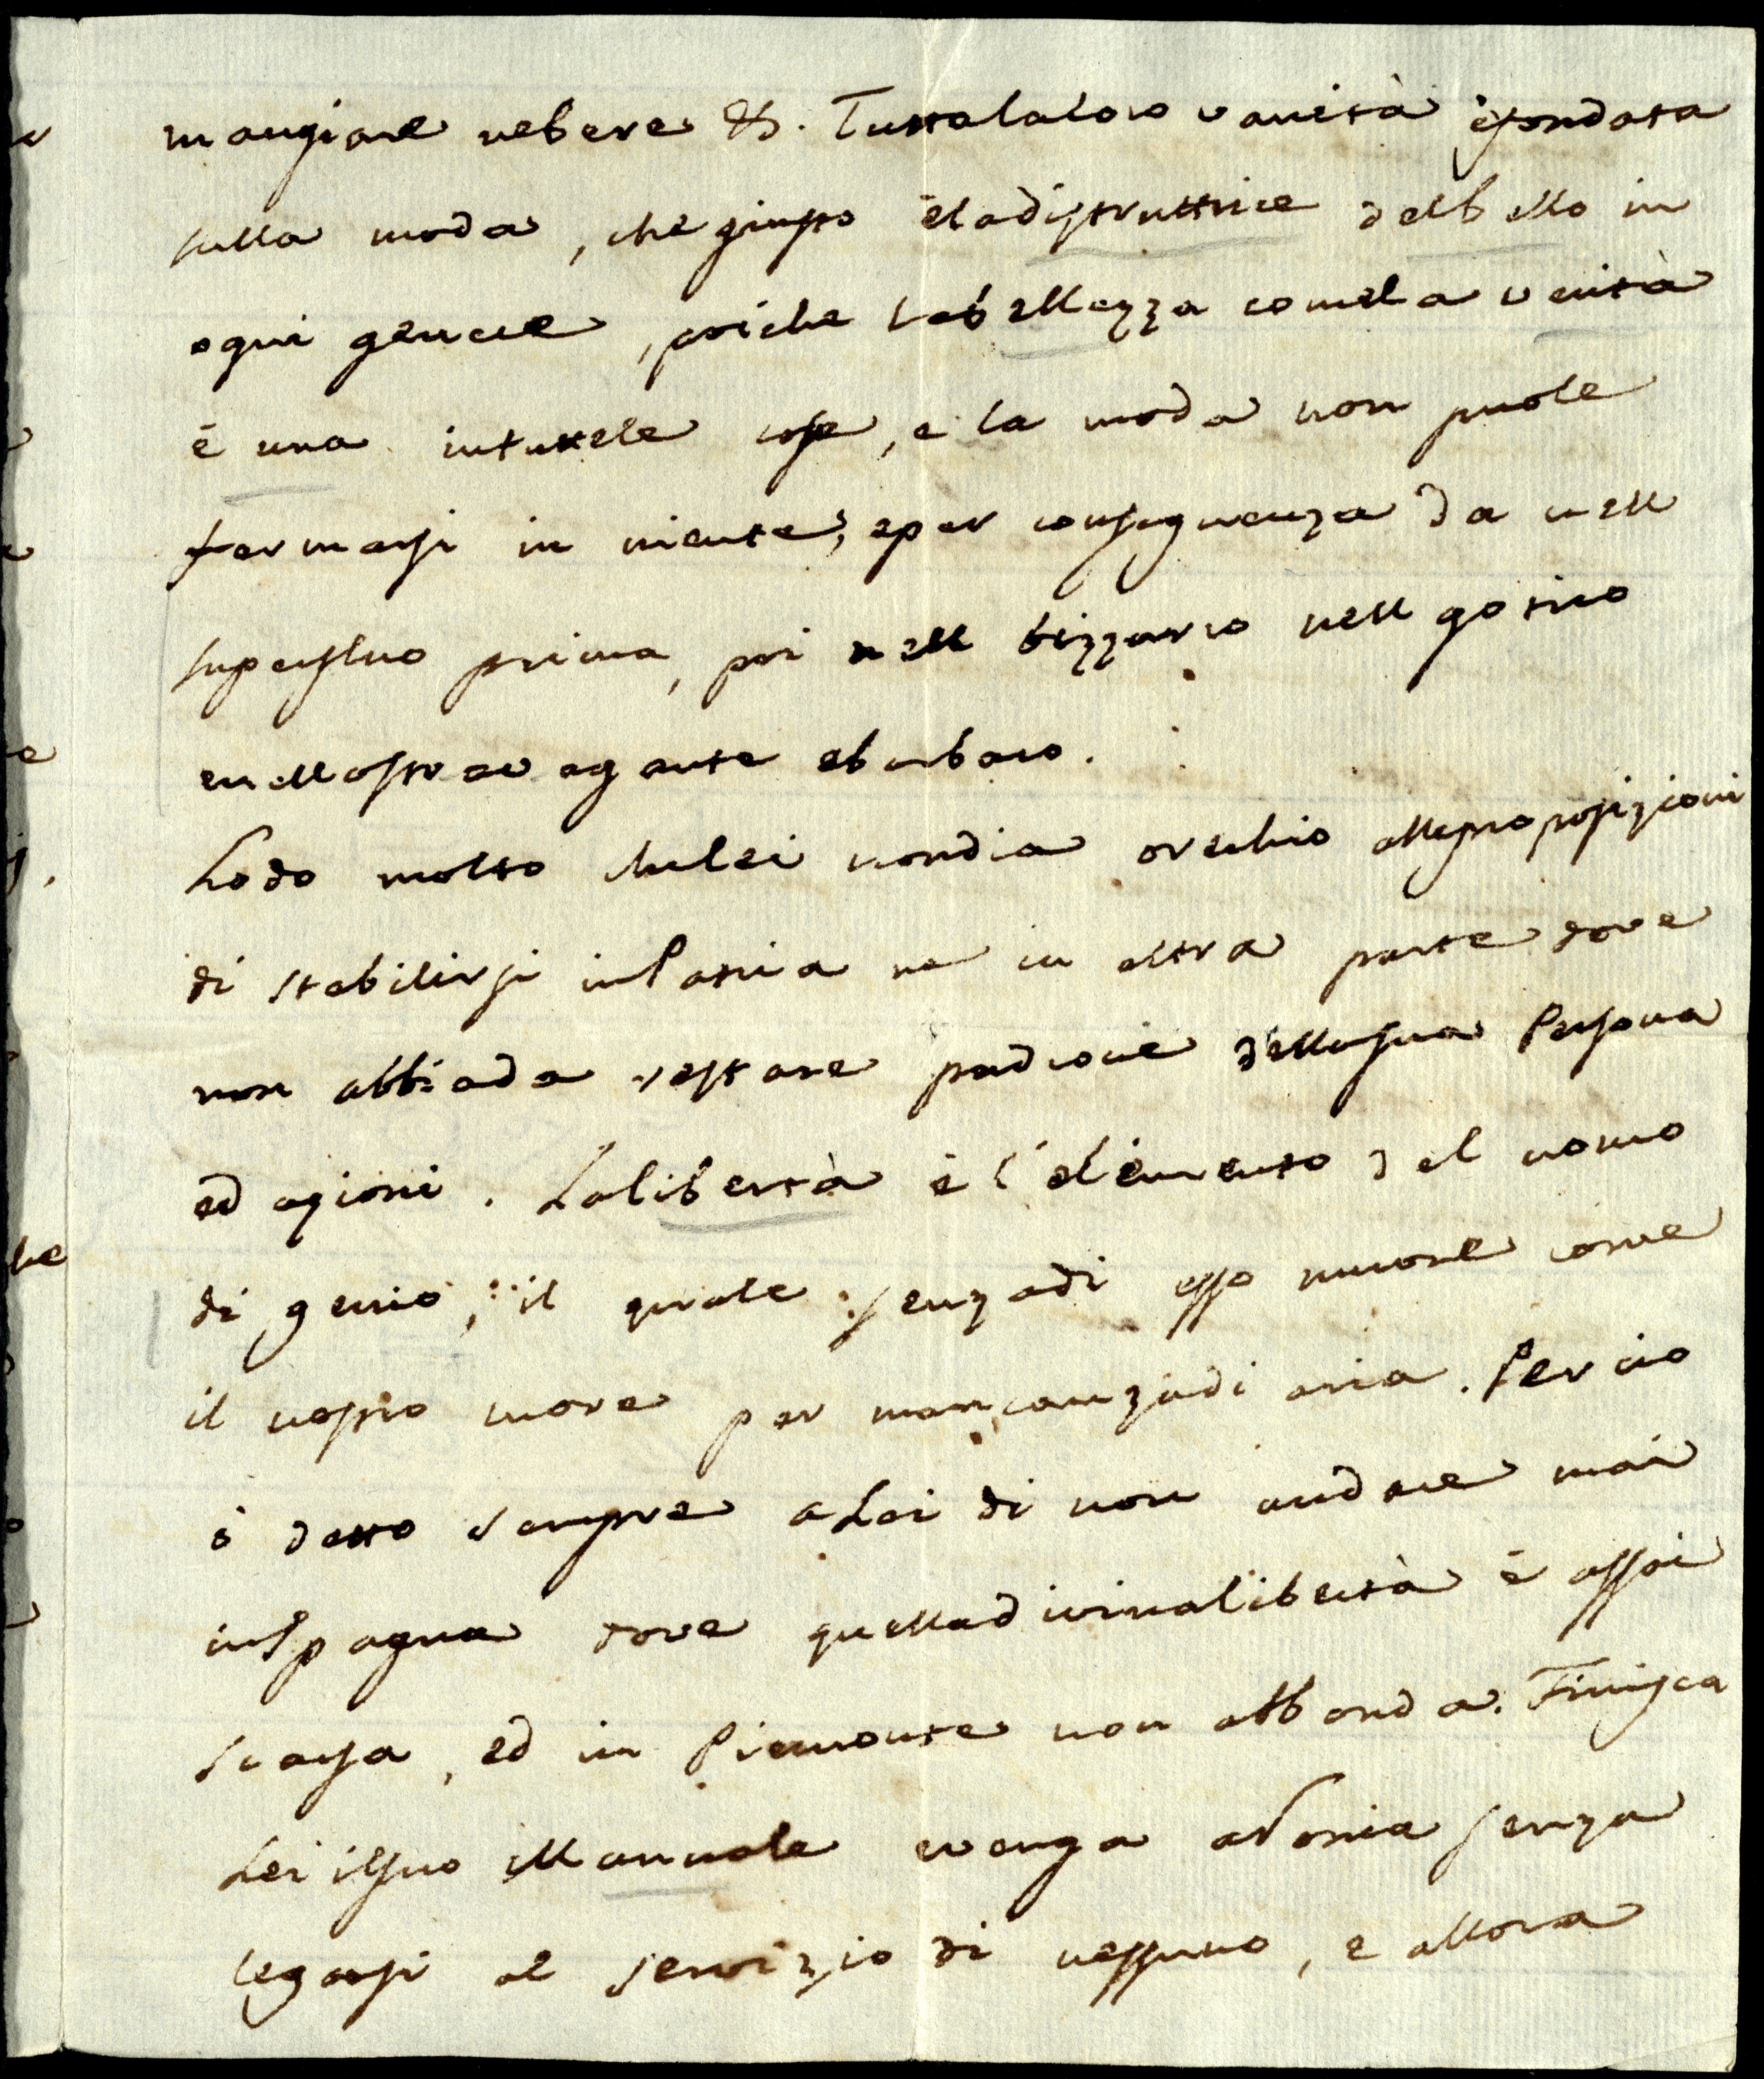 mangiare nebere &. Tuttalaloro vanità èfondata
sulla moda, che giusto èladistruttrice delbello in
ogni genere, poiche labellezza comela verità
è una intuttele cose, e la moda non puole
fermarsi in niente, eper conseguenza da nell
superfluo prima, poi nell bizzarro nell gotico
enellostravagante ebarbaro.
Lodo molto chelei nondia orechio allepropposizioni
di stabilirsi inPatria ne in altra parte dove
non abbiada restare padrone dellasua Persona
ed azioni. Lalibertà è l'elemento del uomo
di genio, il quale senzadi esso muore come
il nostro more per mancanzadi aria. Per cio
ò detto sempre aLei di non andare mai
inSpagna dove quelladivinalibertà è assai
scarsa, ed in Piemonte non abbonda. Finisca
Lei ilsuo Manuale evenga aRoma senza
legarsi al servizio di nessuno, e allora